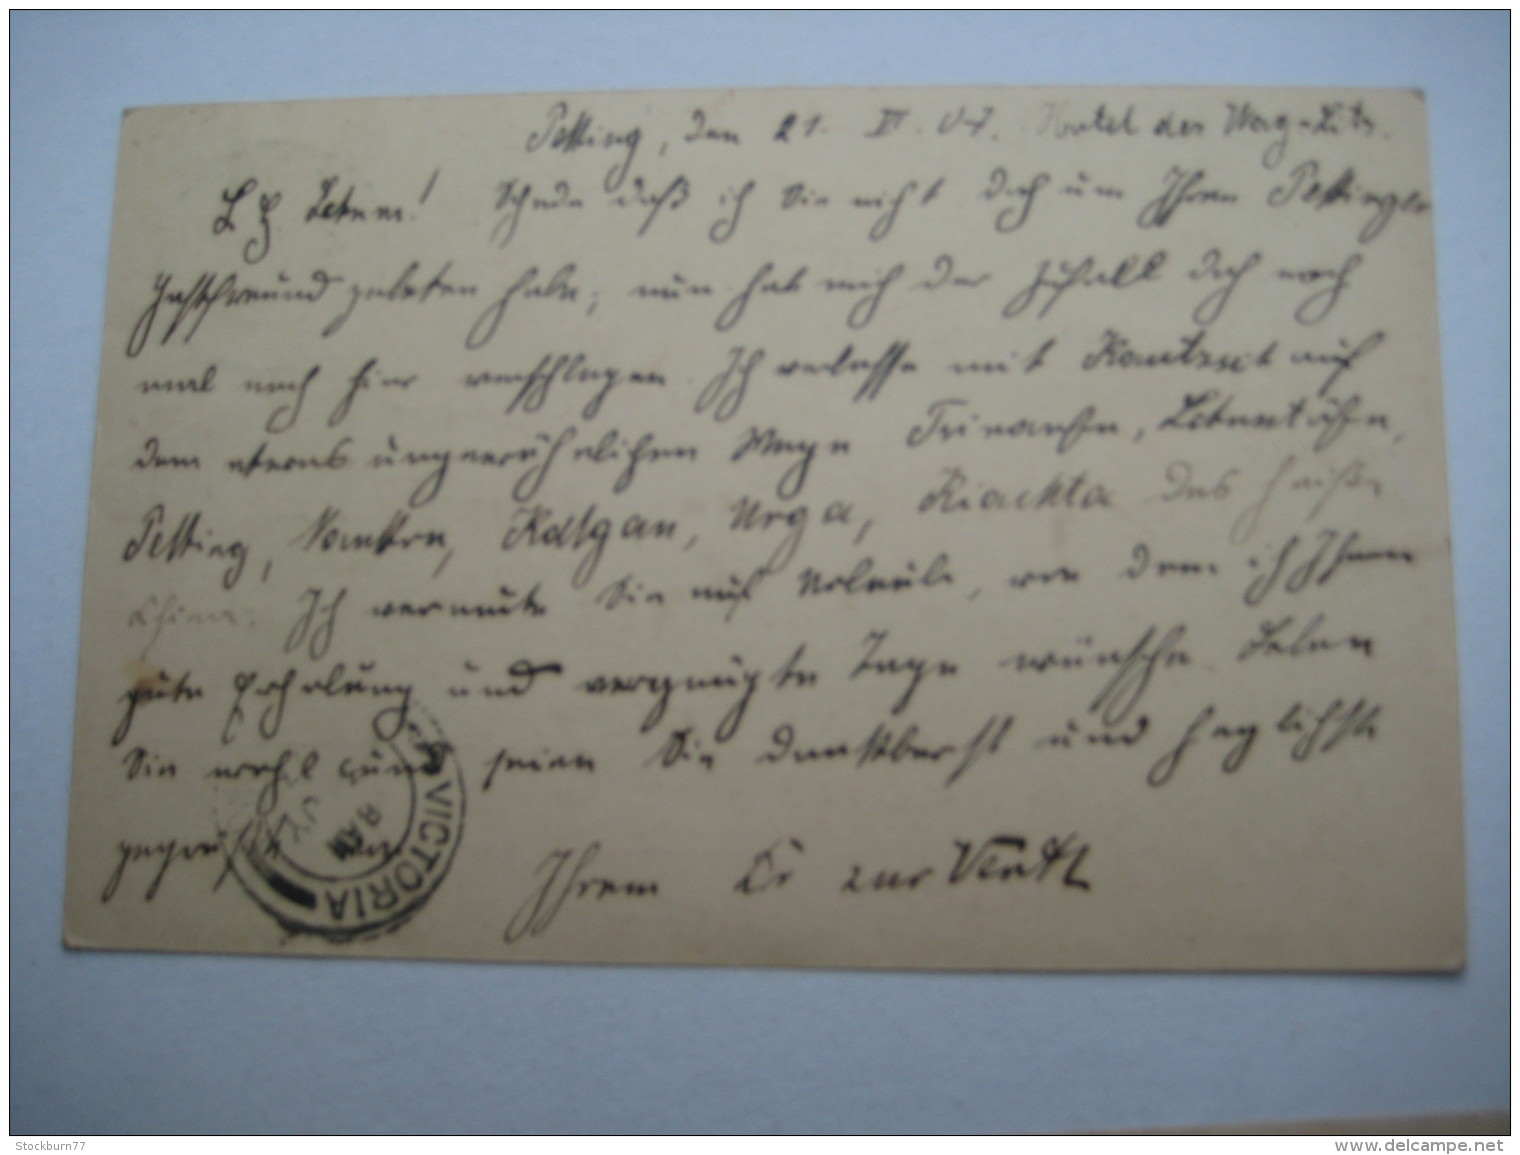 Peking, den 21. VI. 07. Hotel des Wag-Lits.
L. H. ! Schade daß ich Sie nicht doch um Ihren Pekinger
Gastfreund gebeten habe, nun hat mich der Zufall doch noch
mal nach hier verschlagen. Ich verlasse mit auf
dem etwas ungewöhnlichen Wege
Peking, Nankou, Kalgan, Urga, Kiachta das heiße
China. Ich vermute Sie auf Urlaub, von dem ich Ihnen
gute Erholung und vergnügte Tage wünsche. Leben
Sie wohl und seien Sie dankbarst und herzlichst
gegrüßt von
Ihrem zur
VICTORIA
8 AM
JY
Stockburn77
www.delcampe.net